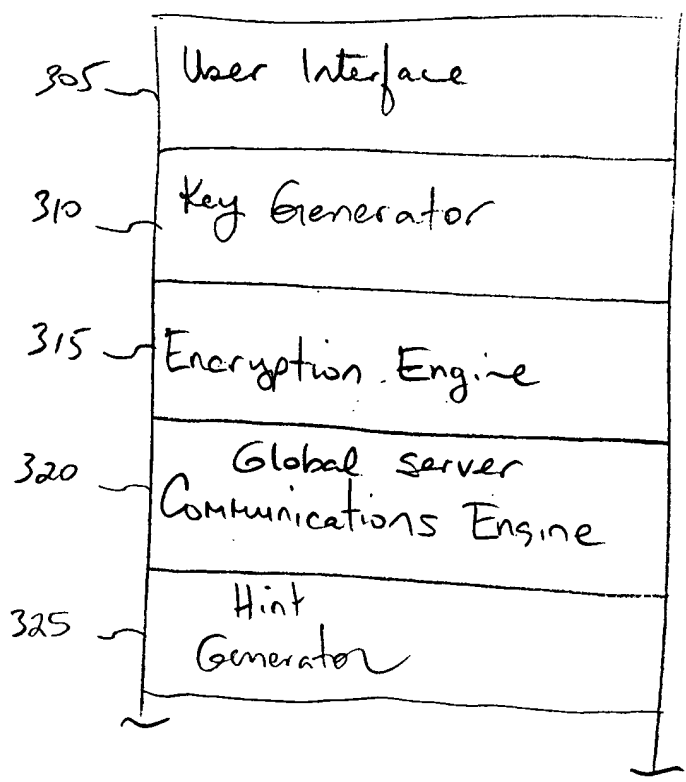 305 User Interface
310 Key Generator
315 Encryption Engine
320 Global server
Communications Engine
325 Hint
Generator